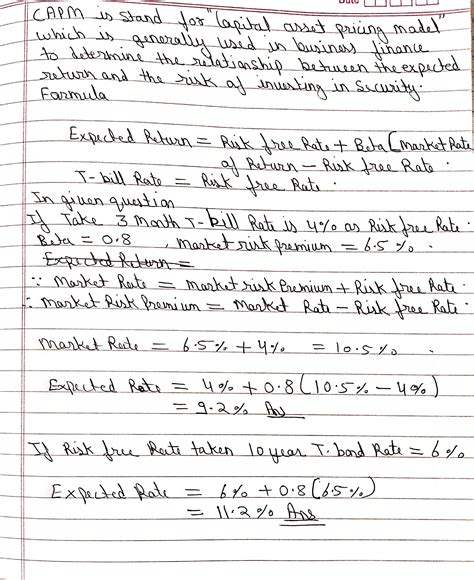 Date
CAPM is stand for "Capital asset pricing model"
which is generally used in business finance
to determine the relationship between the expected
return and the risk of investing in Security.
Formula
Expected Return = Risk free Rate + Beta [Market Rate
of Return - Risk free Rate.
T-bill Rate = Risk free Rate.
In given question
If Take 3 Month T-bill Rate is 4% as Risk free Rate.
Beta = 0.8 , Market risk premium = 6.5 %.
Expected Return =
∵ Market Rate = Market risk Premium + Risk free Rate.
∴ Market Risk Premium = Market Rate - Risk free Rate.
Market Rate = 6.5% + 4% = 10.5% .
Expected Rate = 4% + 0.8 (10.5% - 4%)
= 9.2% Ans
If Risk free Rate taken 10 year T. bond Rate = 6%
Expected Rate = 6% + 0.8 (6.5%)
= 11.2% Ans